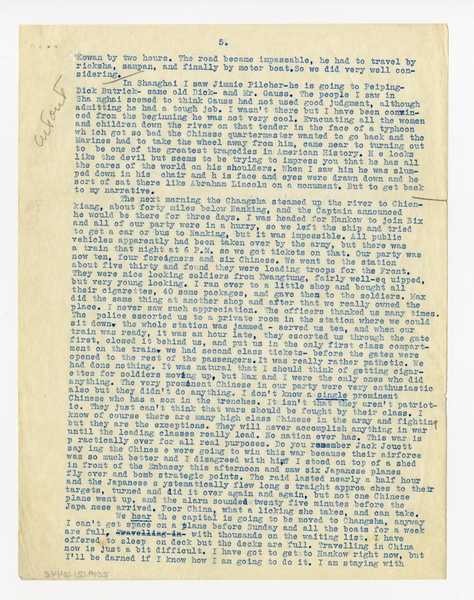 5.
Kowan by two hours. The road became impassable, he had to travel by
ricksha, sampan, and finally by motor boat.So we did very well con-
sidering.
In Shanghai I saw Jimmie Pilcher-he is going to Peiping-
Dick Butrick- same old Dick- and Mr. Gauss. The people I saw in
Sha nghai seemed to think Gauss had not used good judgment, although
admitting he had a tough job. I wasn't there but I have been convin-
ced from the beginning he was not very cool. Evacuating all the women
and children down the river on that tender in the face of a typhoon
wh ich got so bad the Chinese quartermaster wanted to go back and the
Marines had to take the wheel away from him, came near to turning out
to be one of the greatest tragedies in American History. H e looks
like the devil but seems to be trying to impress you that he has all
the cares of the world on his shoulders. When I saw him he was slum-
ped down in his chair and h is face and eyes were drawn down and he
sort of sat there like Abraham Lincoln on a monument. But to get back
to my narrative.
The next morning the Changsha steamed up the river to Chien-
kiang, about forty miles below Nanking, and the Captain announced
he would be there for three days. I was headed for Hankow to join Bix
and all of our party were in a hurry, so we left the ship and tried
to get a car or bus to Nanking, but it was impossible. All public
vehicles apparently had been taken over by the army, but there was
a train that night at 6 P.M. so we got tickets on that. Our party was
now ten, four foreigners and six Chinese. We went to the station
about five thirty and found they were loading troops for the Front.
They were nice looking soldiers from Kwangtung, fairly well-eq uipped,
but very young looking. I ran over to a little shop and bought all
their cigarettes, 40 some packages, and gave them to the soldiers. Max
did the same thing at another shop and after that we really owned the
place. I never saw such appreciation. The officers thanked us many times.
The police escorted us to a private room in the station where we could
sit down, the whole station was jammed - served us tea, and when our
train was ready, it was an hour late, they escorted us through the gate
first, closed it behind us, and put us in the only first class compart-
ment on the train, we had second class tickets- before the gates were
opened to the rest of the passengers. It was really rather pathetic. We
had done nothing. It was natural that I should think of getting cigar-
ettes for soldiers moving up, but Max and I were the only ones who did
anything. The very prominent Chinese in our party were very enthusiastic
also but they didn't do anything. I don't know a single prominent
Chinese who has a son in the trenches. It isn't that they aren't patriot-
ic. They just don't think that wars should be fought by their class. I
know of course there are many high class Chinese in the army and fighting
but they are the exceptions. They will never accomplish anything in war
until the leading classes really lead. No nation ever has. This war is
p ractically over for all real purposes. Do you remember Jack Jouett
say ing the Chines e were going to win this war because their airforce
was so much better and I disagreed with him? I stood on top of a shed
in front of the Embassy this afternoon and saw six Japanese planes
fly over and bomb strategic points. The raid lasted nearly a half hour
and the Japanese s ystematically flew long s traight approaches to their
targets, turned and did it over again and again, but not one Chinese
plane went up, and the alarm sounded twenty five minutes before the
Japa nese arrived. Poor China, what a licking she takes, and can take.
We hear th e capital is going to be moved to Changsha, anyway
I can't get space on a plane before Sunday and all the boats for a week
are full, Travelling in with thousands on the waiting list. I have
offered to sleep on deck but the decks are full. Travelling in China
now is just a bit difficult. I have got to get to Hankow right now, but
I'll be darned if I know how I am going to do it. I am staying with